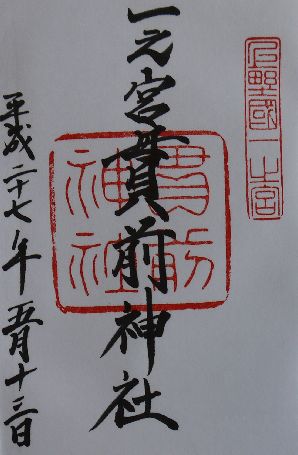 上野國一之宮
一之宮貫前神社
貫前神社
平成二十七年五月十三日